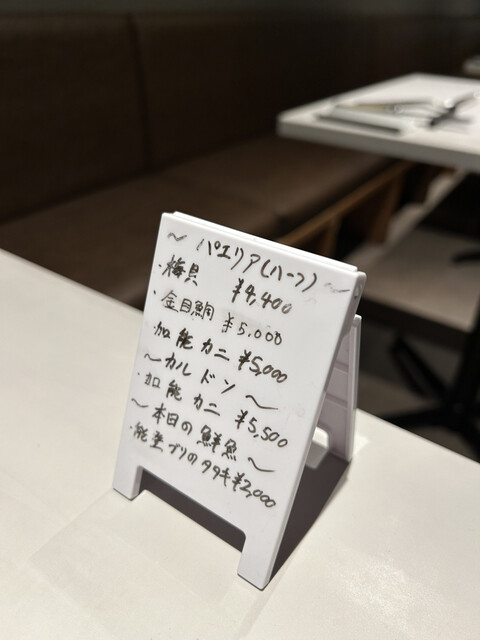 ～ パエリア(ハーフ) ～
・梅貝 ¥4,400
・金目鯛 ¥5,000
・加能カニ ¥5,000
～カルドソ～
・加能カニ ¥5,500
～本日の鮮魚～
・能登ブリのタタキ ¥2,000